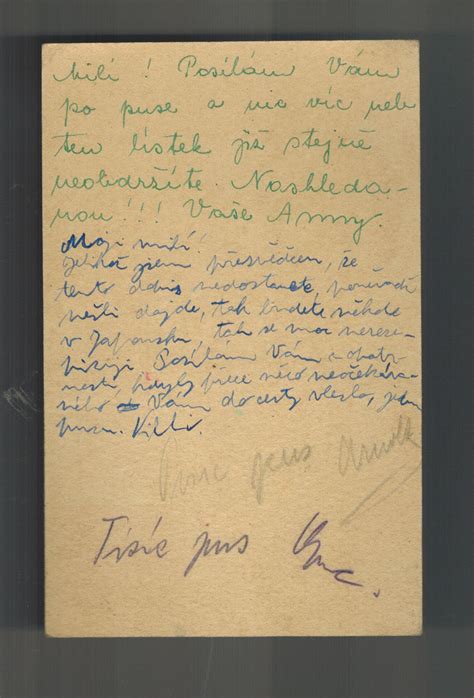 Milí! Posílám Vám
po puse a nic víc neb
ten lístek již stejně
neobdržíte. Nashleda-
nou!!! Vaše Anny.
Moji milí!
Jelikož jsem přesvědčen, že
tento dopis nedostanete, poněvadž
než dojde, tak budete někde
v Japansku, tak se moc nerese-
Posílám Vám
kdyby přece něco neočekáva-
ného Vám do cesty vlezlo, jen
pusu. Villi.
pus
Tisíc pus